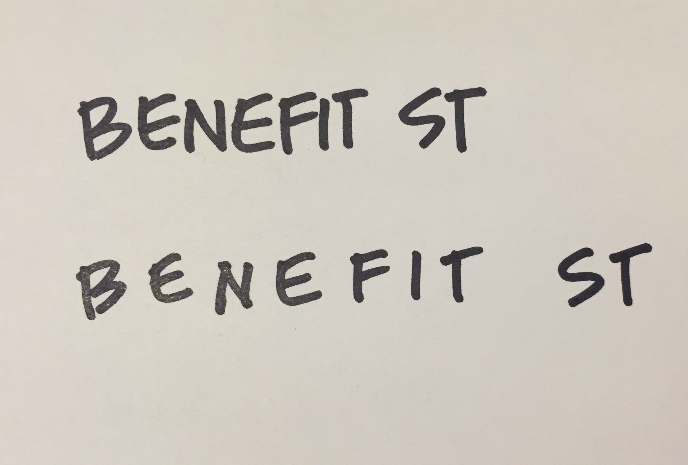 BENEFIT ST
BENEFIT ST